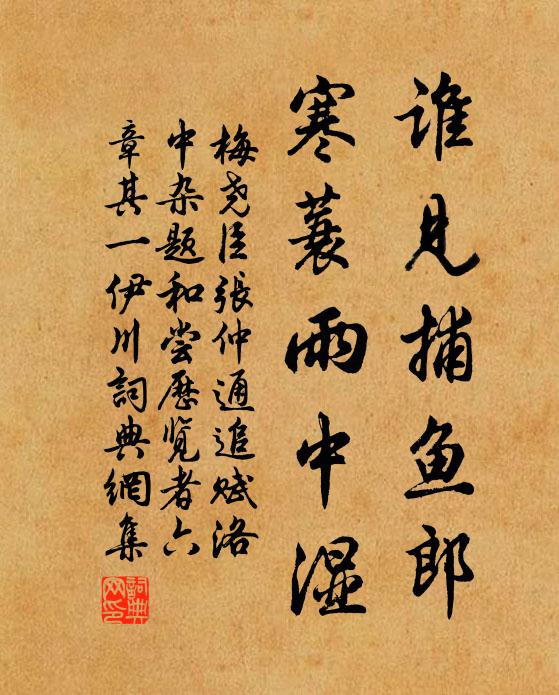 谁见捕鱼郎
寒蓑雨中湿
梅尧臣張仲通追赋洛
中杂题和尝歷览者六
章其一伊川詞典網集
詞典网印